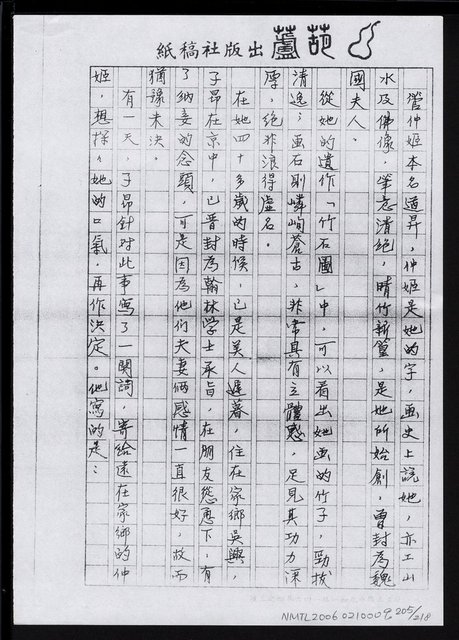 葫蘆出版社稿紙
管仲姬本名道昇，仲姬是她的字，画史上說她，亦工山
水及佛像，筆意清絕，晴竹新篁，是她所始創，曾封為魏
國夫人。
從她的遺作「竹石圖」中，可以看出她画的竹子，勁拔
清逸；画石則嶙峋蒼古，非常具有立體感，足見其功力深
厚，絕非浪得虛名。
在她四十多歲的時候，已是美人遲暮，住在家鄉吳興，
子昂在京中，已晉封為翰林学士承旨，在朋友慫恿下，有
了納妾的念頭，可是因為他们夫妻倆感情一直很好，故而
猶豫未決。
有一天，子昂針对此事寫了一闋詞，寄給遠在家鄉的仲
姬，想探探她的口氣，再作決定。他寫的是：
NMTL20060210009, 205/218